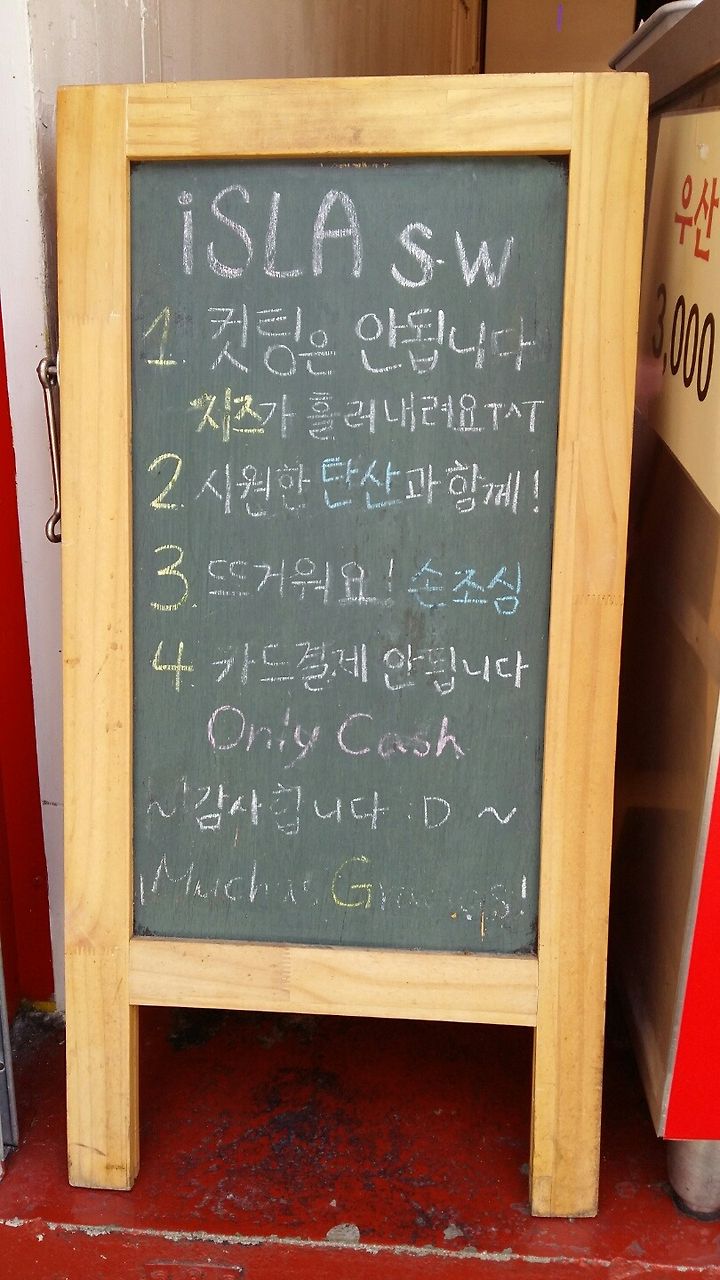 iSLA S.W
1.컷팅은 안됩니다
치즈가 흘러내려요T^T
2. 시원한 탄산과 함께!
3. 뜨거워요! 손조심
4. 카드결제 안됩니다
Only Cash
~감사합니다 :D ~
¡Muchas Gracias!
우산
3,000